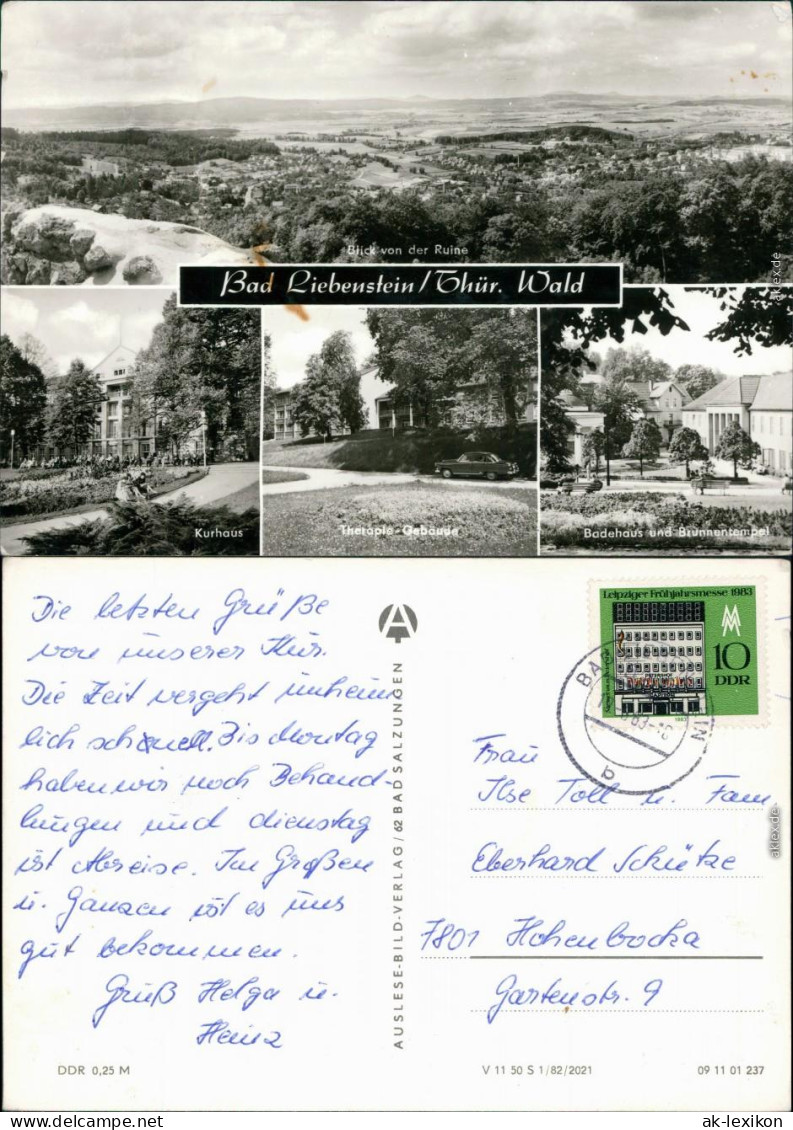 Blick von der Ruine
Bad Liebenstein/Thür. Wald
Kurhaus
Therapie-Gebäude
Badehaus und Brunnentempel
ak-lex.de
Die letzten Grüße
von unserer Kur.
Die Zeit vergeht unheim
lich schnell. Bis Montag
haben wir noch Behand-
lungen und dienstag
ist Abreise. Im Großen
u. Ganzen ist es uns
gut bekommen.
Gruß Helga u.
Heinz
DDR 0,25 M
A
AUSLESE-BILD-VERLAG / 62 BAD SALZUNGEN
Leipziger Frühjahrsmesse 1983
10
DDR
1983
BAD
b
Frau
Ilse Toll u. Fam
Eberhard Schütze
7801 Hohenbocka
Gartenstr. 9
V 11 50 S 1/82/2021
09 11 01 237
ak-lex.de
ak-lexikon